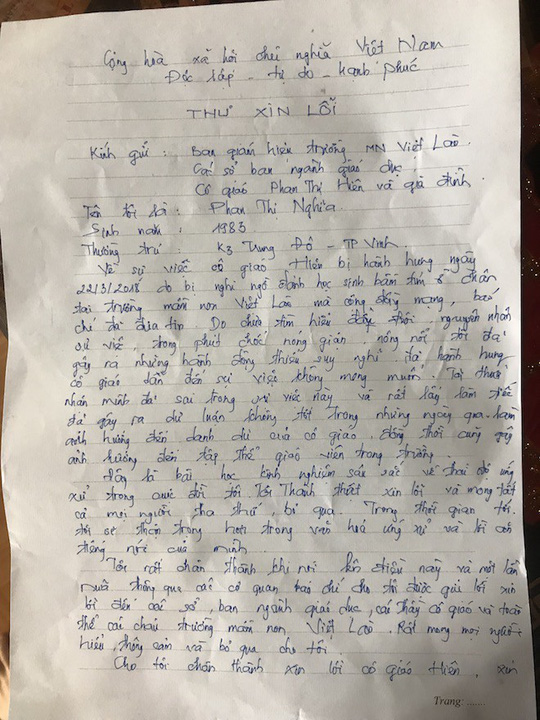 Cộng hoà xã hội chủ nghĩa Việt Nam
Độc lập - tự do - hạnh phúc
THƯ XIN LỖI
Kính gửi : Ban giám hiệu trường MN Việt Lào.
Các sở ban ngành giáo dục
Cô giáo Phan Thị Hiền và gia đình
Tên tôi là : Phan Thị Nghĩa
Sinh năm : 1983
Thường trú : K3 Trung Đô - TP Vinh
Về sự việc cô giáo Hiền bị hành hung ngày
22/3/2018 do bị nghi ngờ đánh học sinh bầm tím ở chân
tại trường mầm non Việt Lào mà cộng đồng mạng, báo
chí đã đưa tin. Do chưa tìm hiểu nguyên nhân
sự việc, trong phút chốc nóng giận, nông nổi tôi đã
gây ra những hành động thiếu suy nghĩ là hành hung
cô giáo dẫn đến sự việc không mong muốn. Tôi thấy
nhận mình đã sai trong sự việc này và rất lấy làm tiếc
đã gây ra dư luận không tốt trong những ngày qua làm
ảnh hưởng đến danh dự của cô giáo, đồng thời cũng gây
ảnh hưởng đến tập thể giáo viên trong trường.
Đây là bài học kinh nghiệm sâu sắc về thái độ ứng
xử trong cuộc đời tôi. Tôi thành thật xin lỗi và mong tất
cả mọi người tha thứ, bỏ qua. Trong thời gian tới,
tôi sẽ thận trọng hơn trong văn hoá ứng xử và lời ăn
tiếng nói của mình.
Tôi rất chân thành khi nói lên điều này và một lần
nữa thông qua các cơ quan báo chí cho tôi được gửi lời xin
lỗi đến các sở, ban ngành giáo dục, các thầy cô giáo và toàn
thể các cháu trường mầm non Việt Lào. Rất mong mọi người
hiểu, thông cảm và bỏ qua cho tôi.
Cho tôi chân thành xin lỗi cô giáo Hiền, xin
Trang: ......